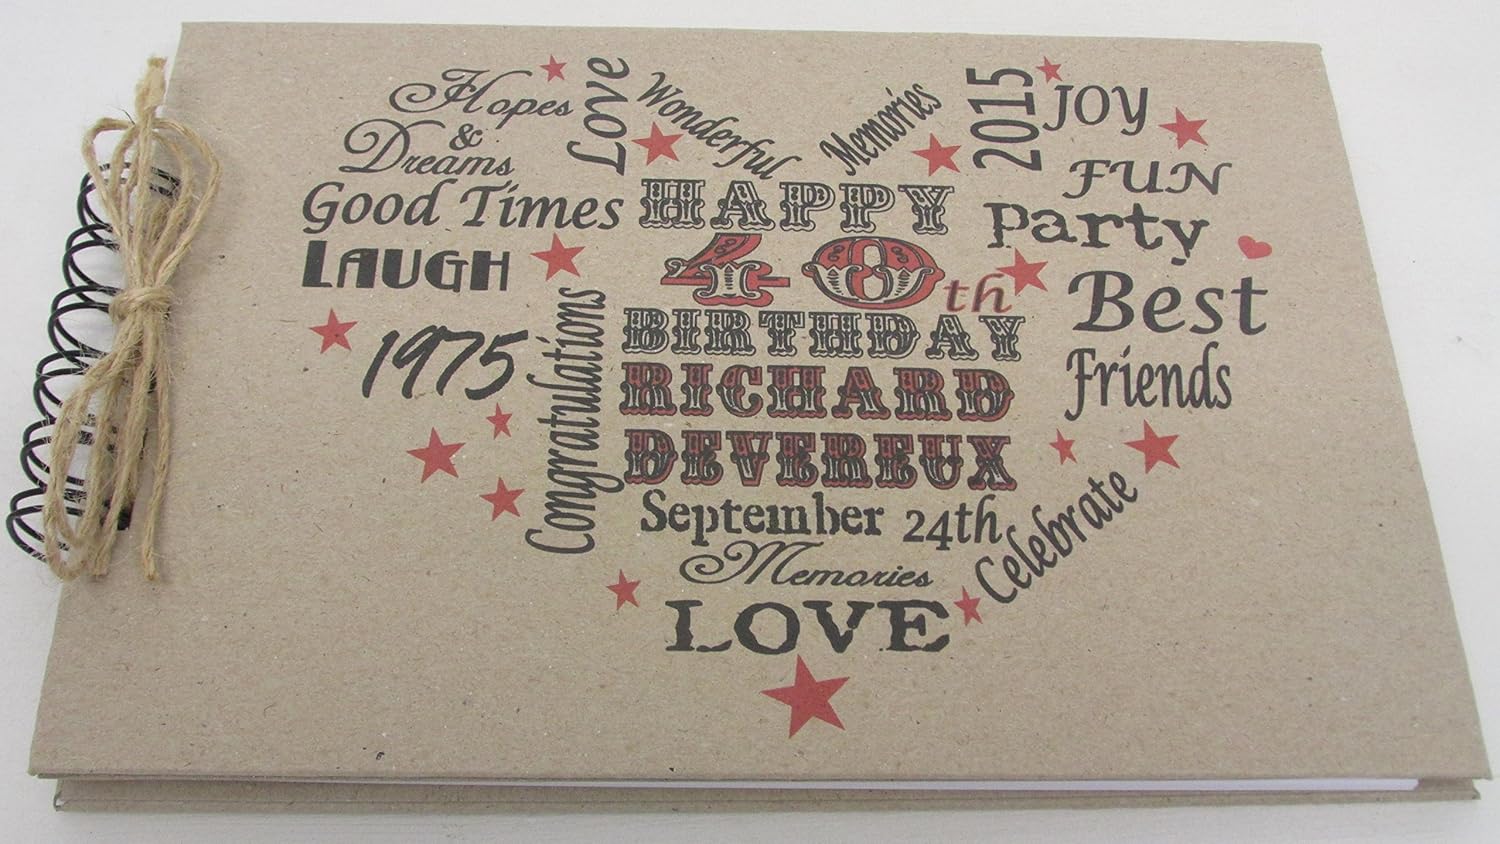 Hopes
&
Dreams
Good Times
LAUGH
1975
Congratulations
Love
Wonderful
Memories
2015
JOY
FUN
Party
Best
Friends
HAPPY
40th
BIRTHDAY
RICHARD
DEVEREUX
September 24th
Memories
LOVE
Celebrate